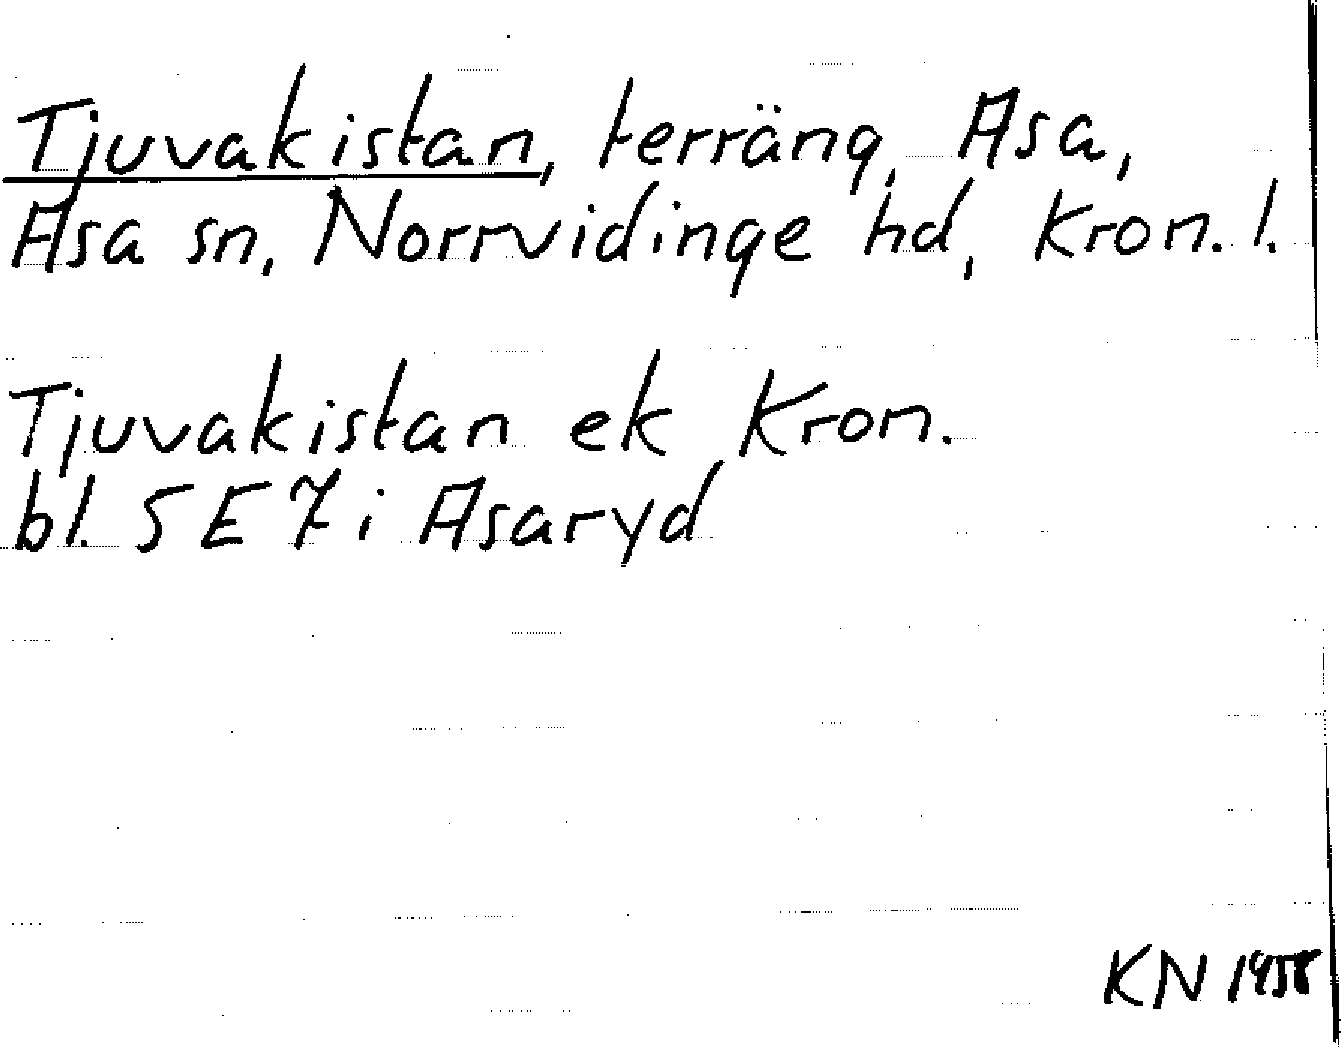 Tjuvakistan, terräng, Asa,
Asa sn, Norrvidinge hd, Kron. l.
Tjuvakistan ek Kron.
bl. 5 E 7 i Asaryd
KN 1958